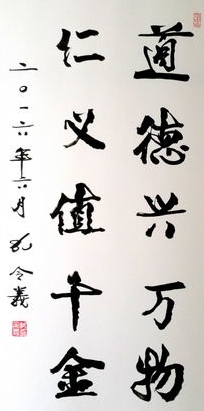 道德兴万物
仁义值千金
二〇一六年六月 孔令義